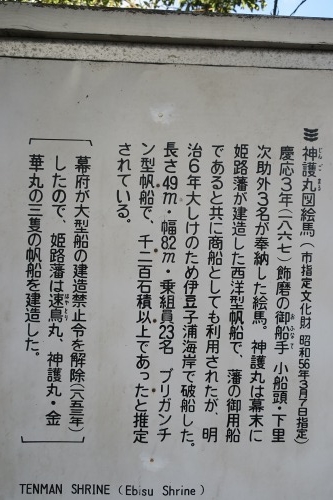 神護丸図絵馬(市指定文化財 昭和56年3月7日指定)
慶応3年(一八六七)飾磨の御船手 小船頭・下里
次助外3名が奉納した絵馬。神護丸は幕末に
姫路藩が建造した西洋型帆船で、藩の御用船
であると共に商船としても利用されたが、明
治6年大しけのため伊豆子浦海岸で破船した。
長さ49m・幅82m・乗組員23名 ブリガンチ
ン型帆船で、千二百石積以上であったと推定
されている。
幕府が大型船の建造禁止令を解除(一八五三年)
したので、姫路藩は速鳥丸、神護丸・金
華丸の三隻の帆船を建造した。
TENMAN SHRINE (Ebisu Shrine)